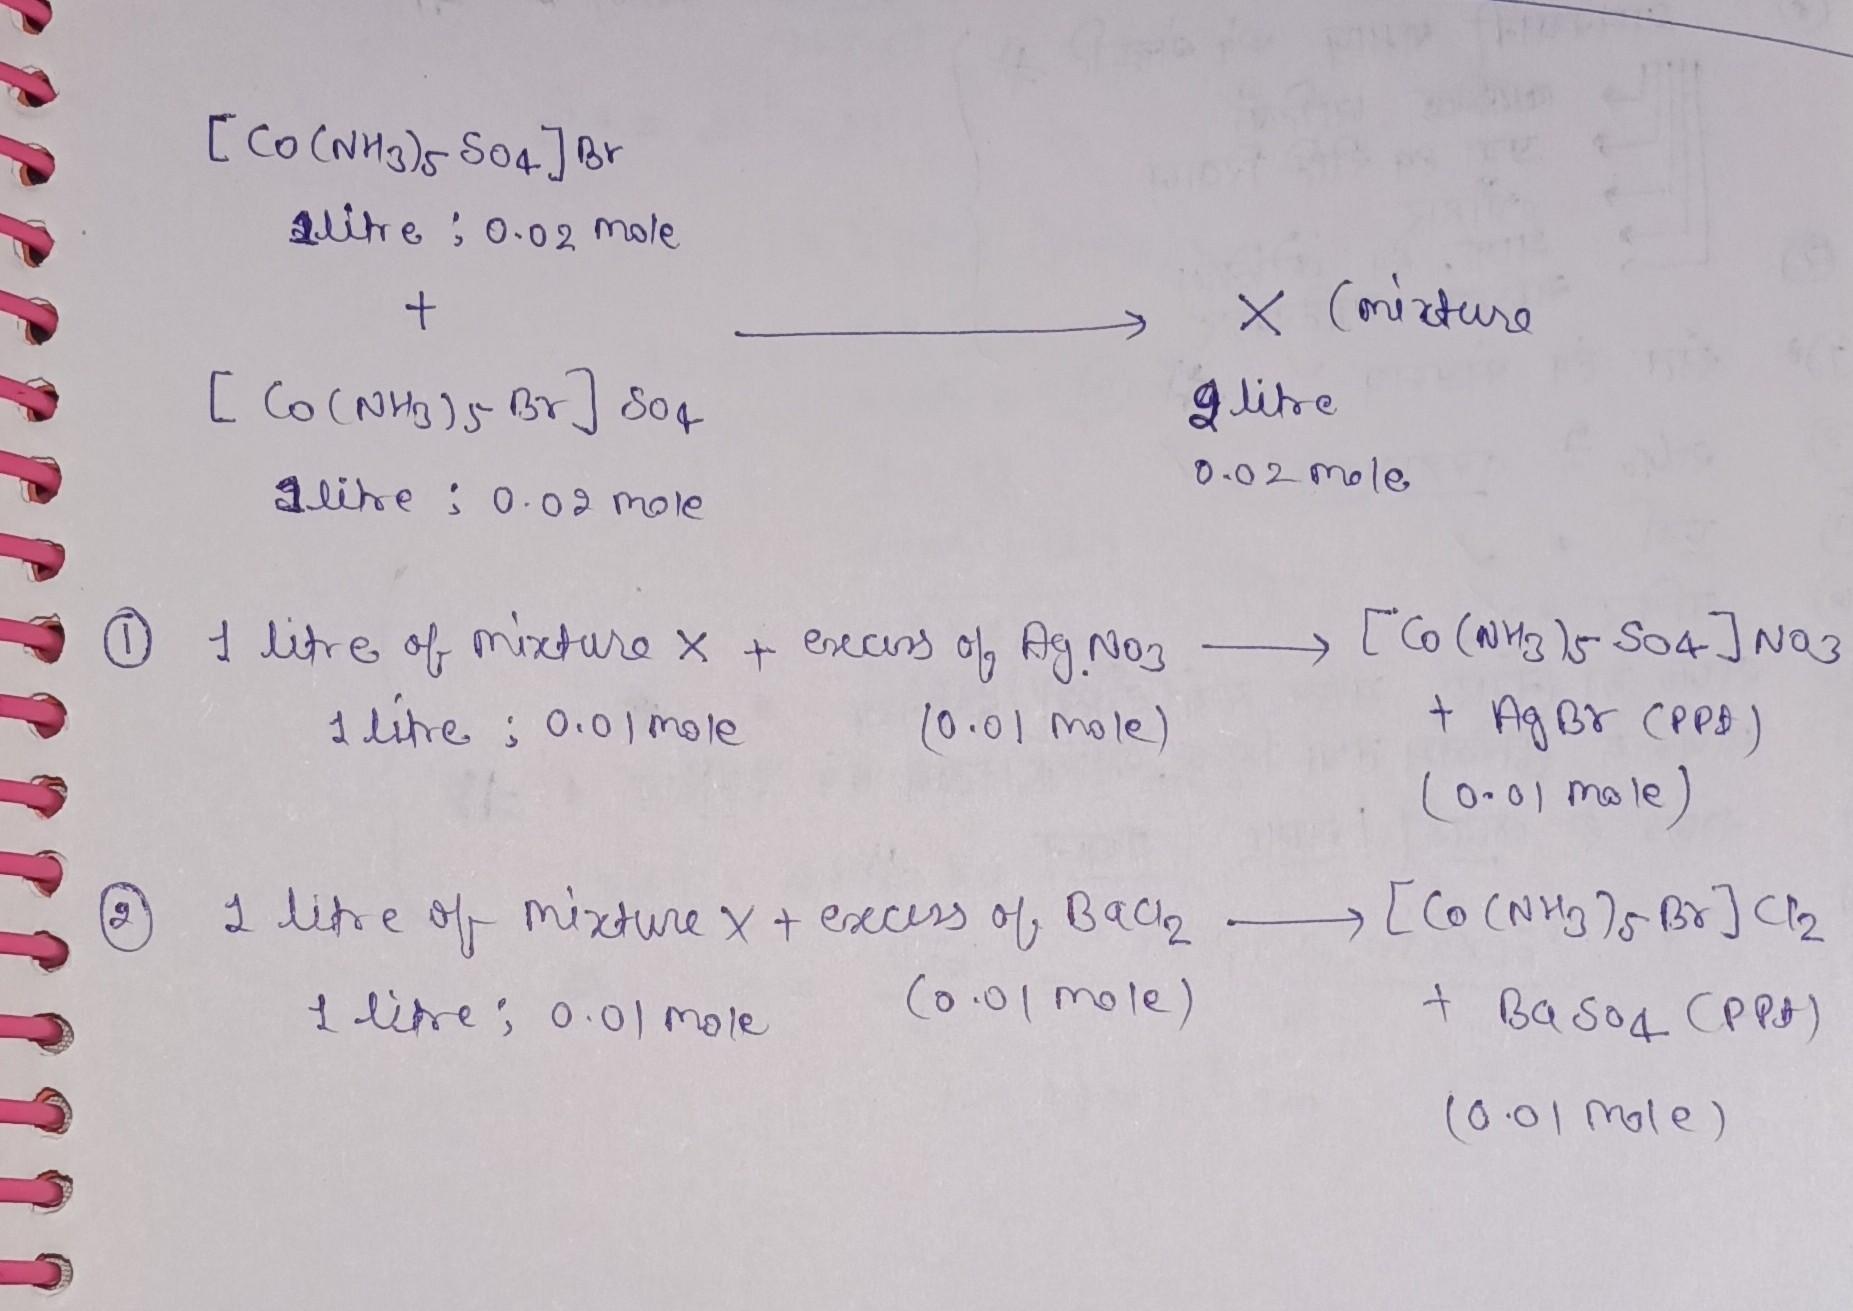 [Co(NH3)5 SO4]Br
1litre ; 0.02 mole
+
X (mixture
[Co(NH3)5 Br] SO4
2 litre
1litre ; 0.02 mole
0.02 mole
① 1 litre of mixture X + excess of AgNO3 → [Co(NH3)5 SO4] NO3
1 litre ; 0.01 mole (0.01 mole) + AgBr (PPt)
(0.01 mole)
② 1 litre of mixture X + excess of BaCl2 → [Co(NH3)5 Br] Cl2
1 litre ; 0.01 mole (0.01 mole) + BaSO4 (PPt)
(0.01 mole)